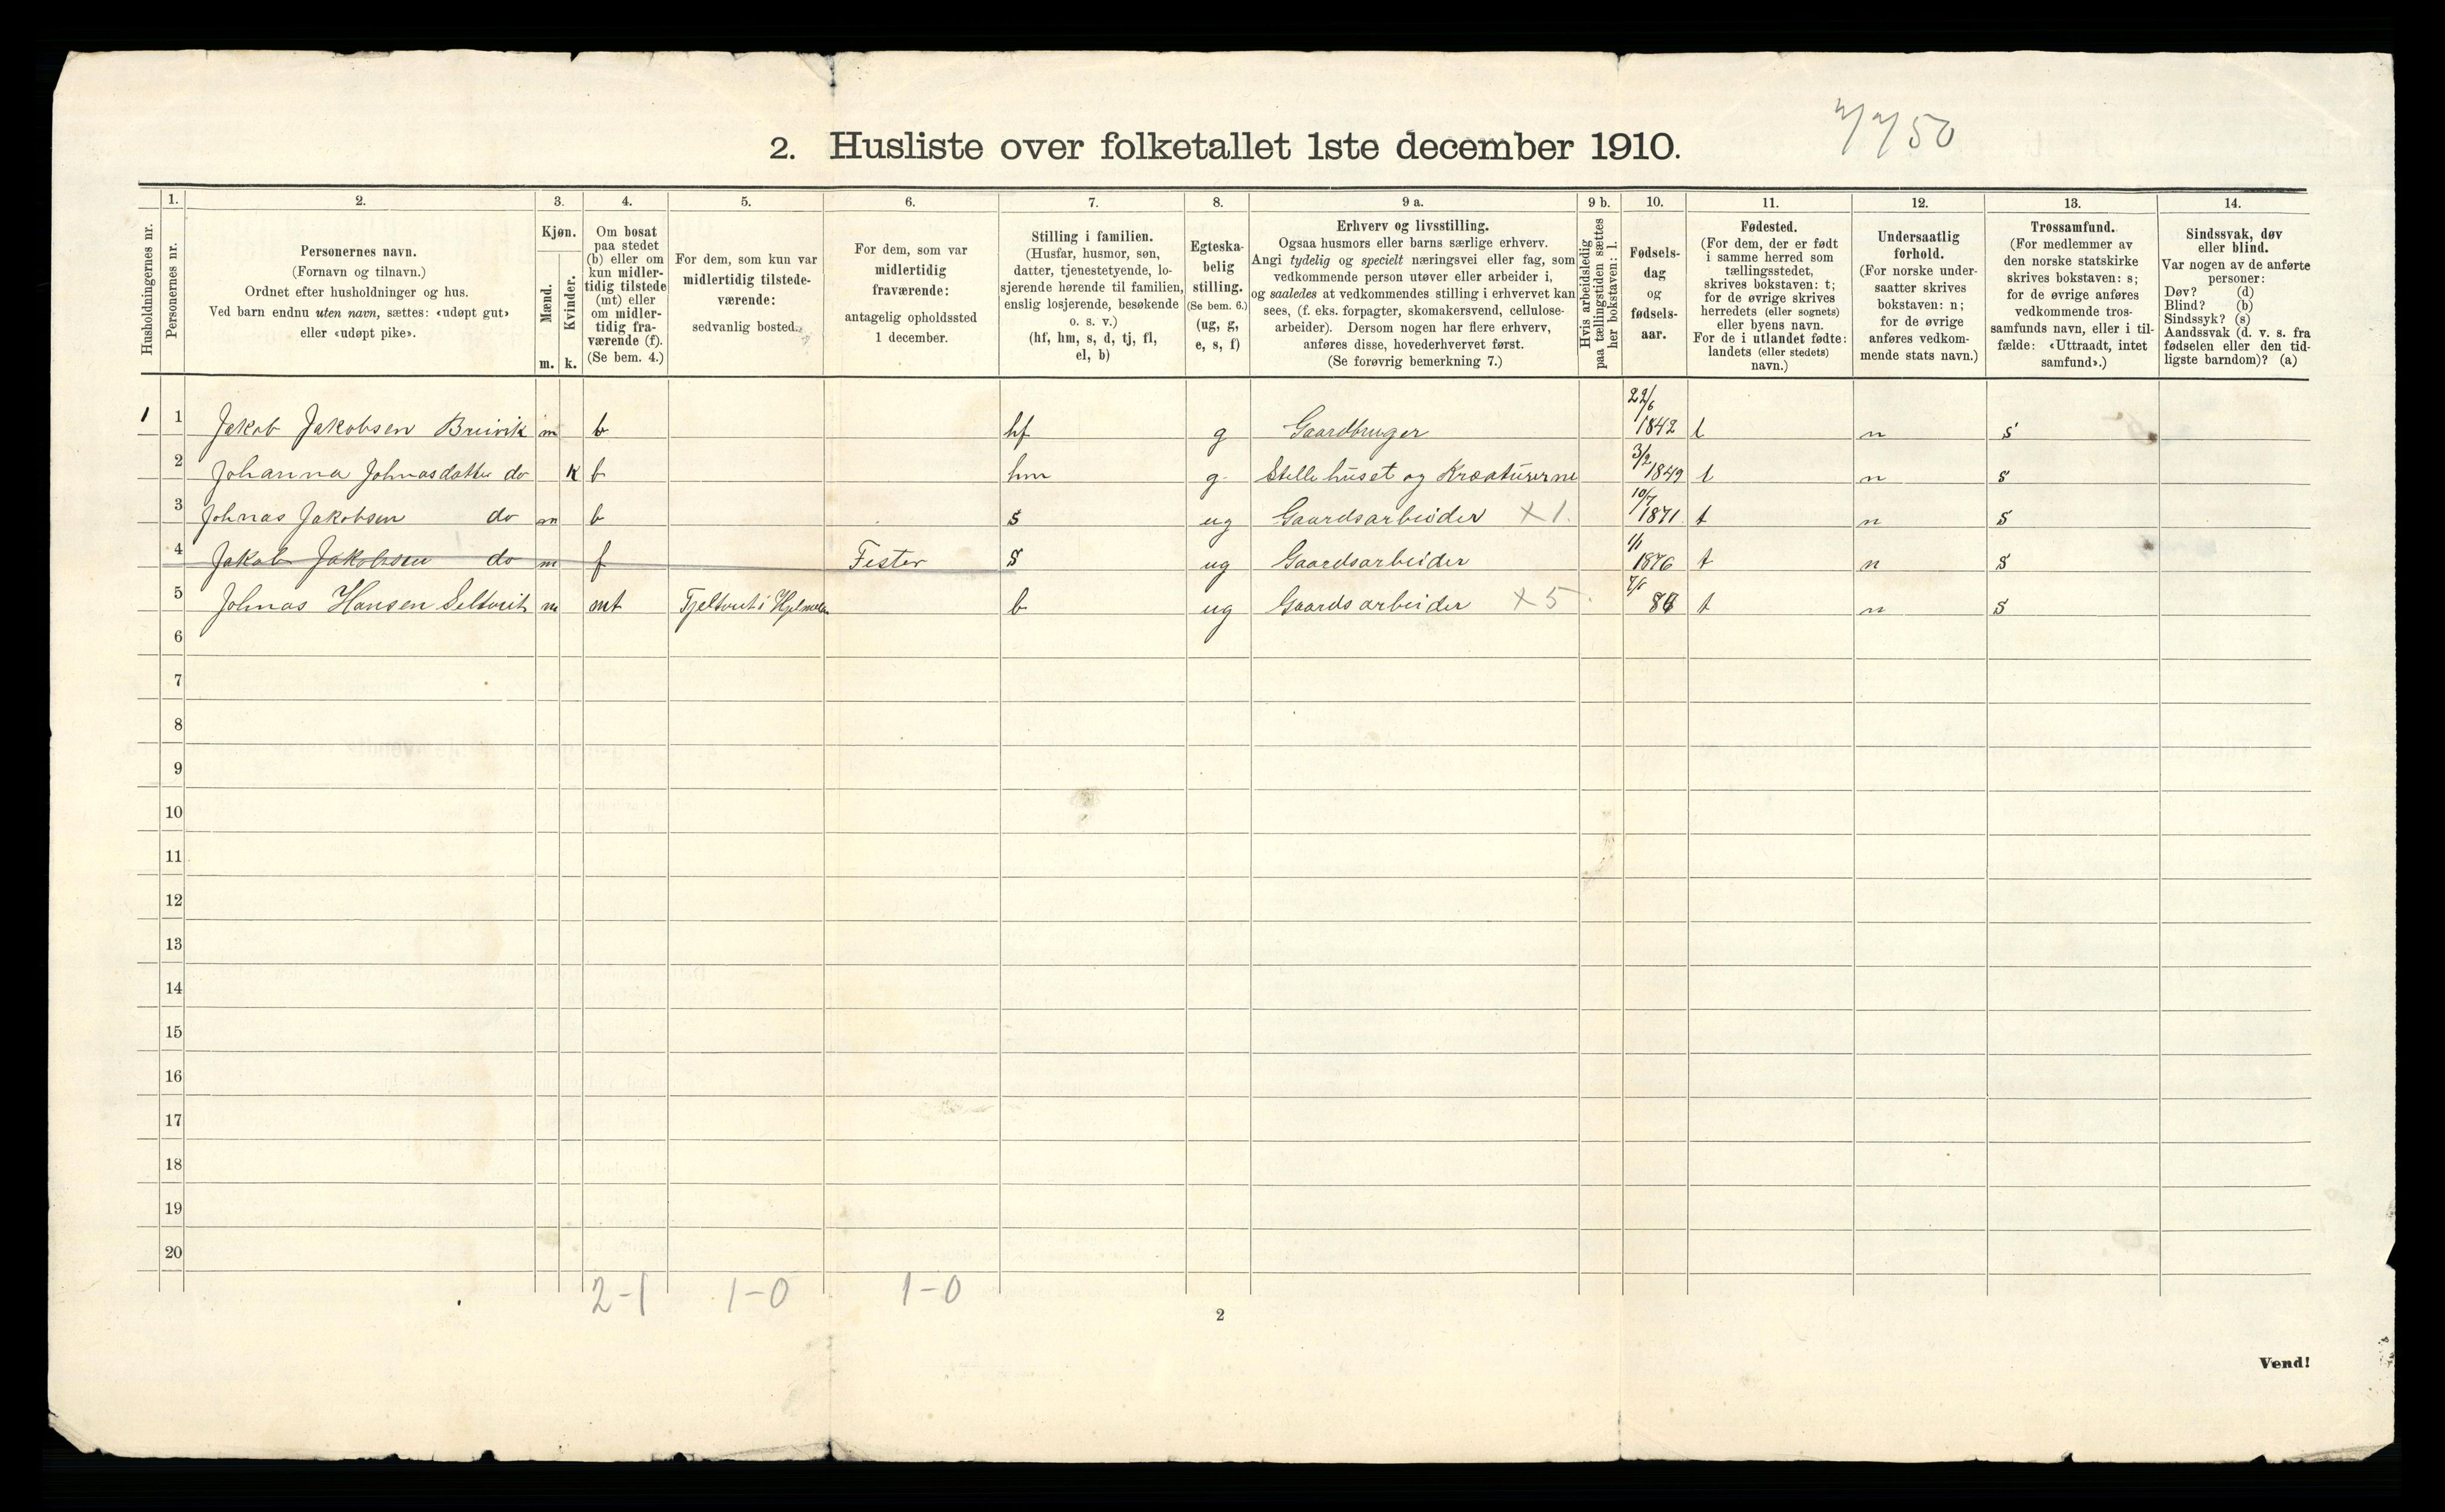 2. Husliste over folketallet 1ste december 1910.
Husholdningernes nr.
1.
Personernes nr.
2.
Personernes navn.
(Fornavn og tilnavn.)
Ordnet efter husholdninger og hus.
Ved barn endnu uten navn, sættes: «udøpt gut»
eller «udøpt pike».
3.
Kjøn.
Mænd.
Kvinder.
m. k.
4.
Om bosat
paa stedet
(b) eller om
kun midler-
tidig tilstede
(mt) eller
om midler-
tidig fra-
værende (f).
(Se bem. 4.)
5.
For dem, som kun var
midlertidig tilstede-
værende:
sedvanlig bosted.
6.
For dem, som var
midlertidig
fraværende:
antagelig opholdssted
1 december.
7.
Stilling i familien.
(Husfar, husmor, søn,
datter, tjenestetyende, lo-
sjerende hørende til familien,
enslig losjerende, besøkende
o. s. v.)
(hf, hm, s, d, tj, fl,
el, b)
8.
Egteska-
belig
stilling.
(Se bem. 6.)
(ug, g,
e, s, f)
9 a.
Erhverv og livsstilling.
Ogsaa husmors eller barns særlige erhverv.
Angi tydelig og specielt næringsvei eller fag, som
vedkommende person utøver eller arbeider i,
og saaledes at vedkommendes stilling i erhvervet kan
sees, (f. eks. forpagter, skomakersvend, cellulose-
arbeider). Dersom nogen har flere erhverv,
anføres disse, hovederhvervet først.
(Se forøvrig bemerkning 7.)
9 b.
Hvis arbeidsledig
paa tællingstiden sættes
her bokstaven: l.
10.
Fødsels-
dag
og
fødsels-
aar.
11.
Fødested.
(For dem, der er født
i samme herred som
tællingsstedet,
skrives bokstaven: t;
for de øvrige skrives
herredets (eller sognets)
eller byens navn.
For de i utlandet fødte:
landets (eller stedets)
navn.)
12.
Undersaatlig
forhold.
(For norske under-
saatter skrives
bokstaven: n;
for de øvrige
anføres vedkom-
mende stats navn.)
13.
Trossamfund.
(For medlemmer av
den norske statskirke
skrives bokstaven: s;
for de øvrige anføres
vedkommende tros-
samfunds navn, eller i til-
fælde: «Uttraadt, intet
samfund».)
14.
Sindssvak, døv
eller blind.
Var nogen av de anførte
personer:
Døv? (d)
Blind? (b)
Sindssyk? (s)
Aandssvak (d. v. s. fra
fødselen eller den tid-
ligste barndom)? (a)
1 1 Jakob Jakobsen Bruvik m b hf g Gaardbruger 22/6 1842 t n s
2 Johanna Johnasdatter do k b hm g Stelle huset og Kreaturerne 3/2 1849 t n s
3 Johnas Jakobsen do m b s ug Gaardsarbeider X 1. 10/7 1871 t n s
4 Jakob Jakobsen do m f Fister s ug Gaardsarbeider 1/1 1876 t n s
5 Johnas Hansen m mt b ug Gaardsarbeider X 5. t n s
6
7
8
9
10
11
12
13
14
15
16
17
18
19
20
2-1 1-0 1-0
2
Vend!